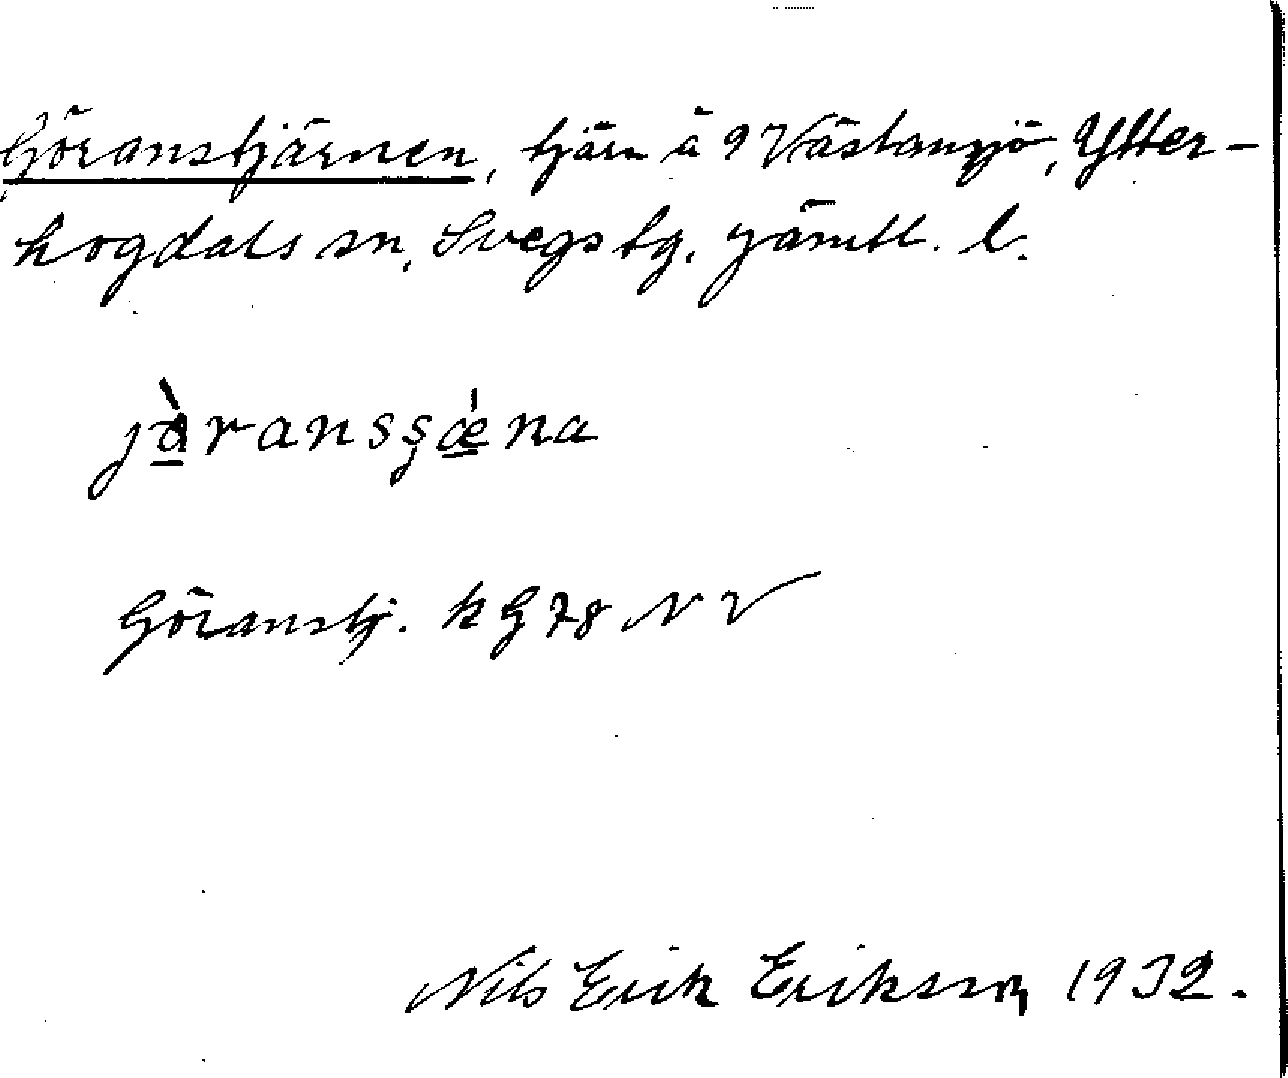 Göranstjärnen, tjärn å 9 Västansjö, Ytter-
hogdals sn, Svegs tg. Jämtl. l.
jö̀ransʂǽna
Göranstj. k G 78 N V
Nils Erik Eriksson 1932.